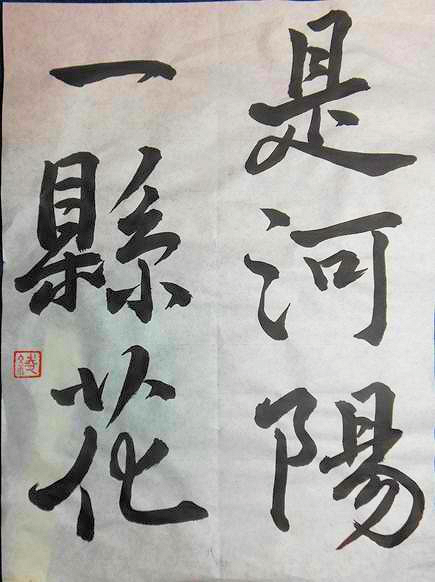 是河陽
一縣花